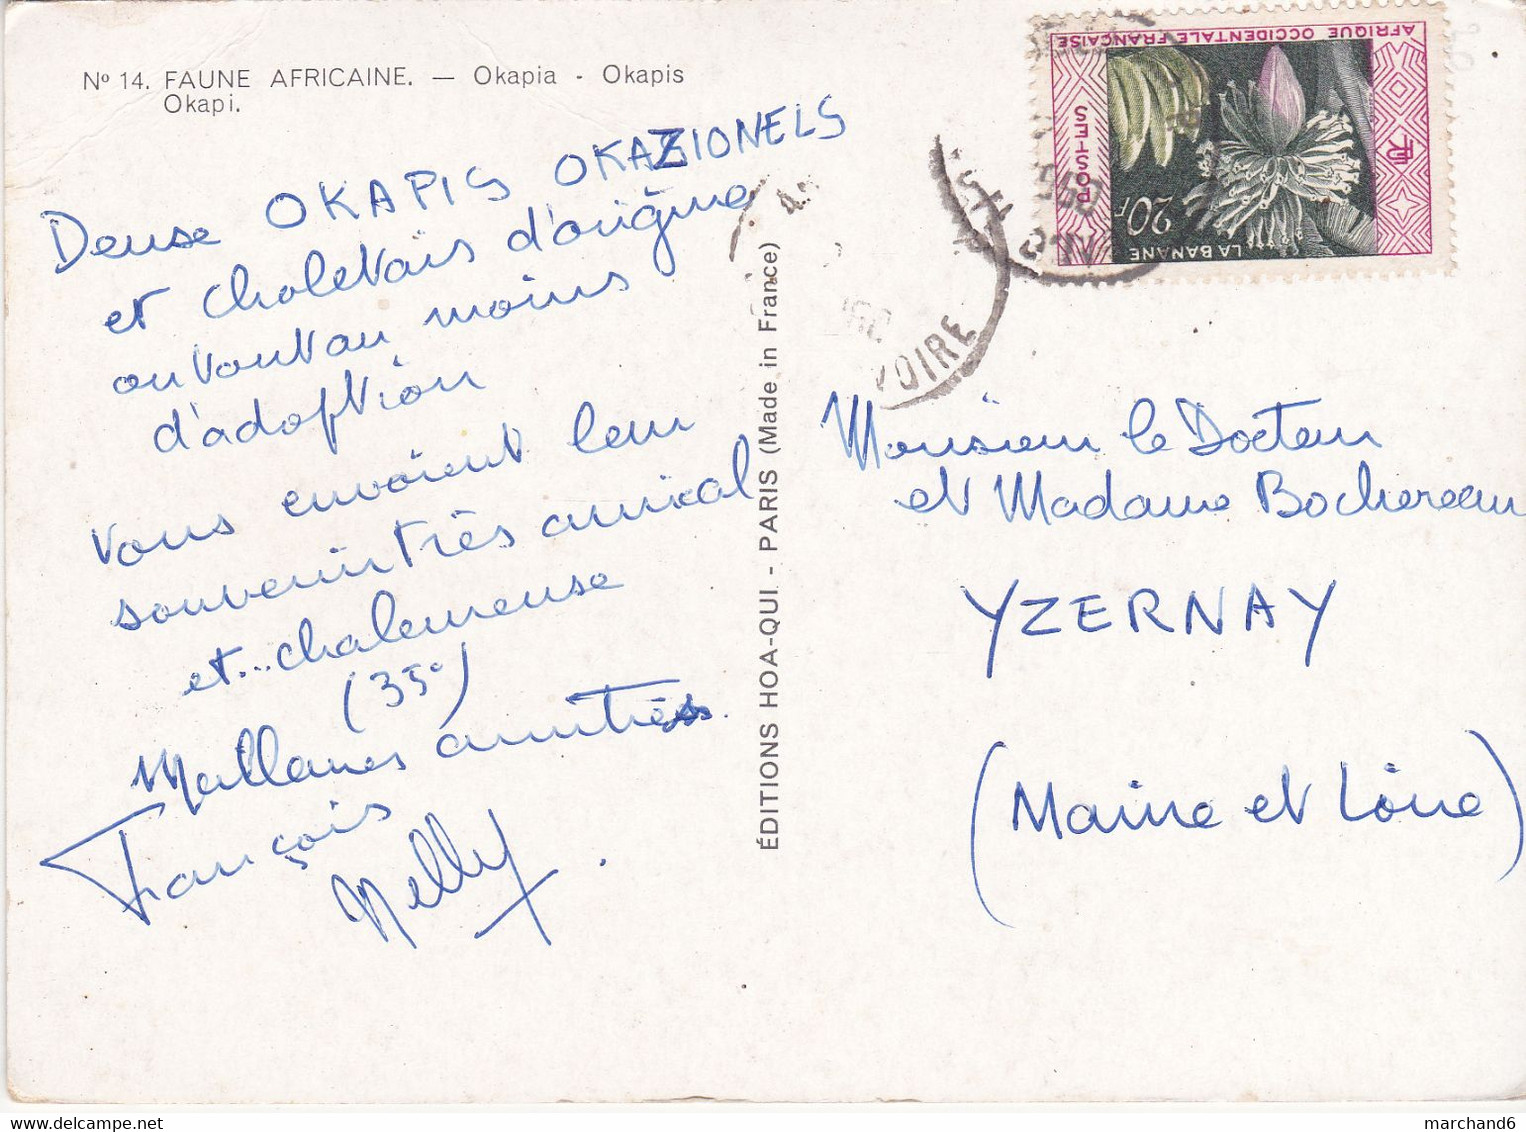 Nº 14. FAUNE AFRICAINE. — Okapia - Okapis
Okapi.
Deuse OKAPIS OKAZIONELS
et choletais d'origine
ou tout au moins
d'adoption
vous envoient leur
souvenir très amical
et...chaleureuse
(35°)
Meilleures amitiés.
François
Nelly
ÉDITIONS HOA-QUI - PARIS (Made in France)
AFRIQUE OCCIDENTALE FRANÇAISE
POSTES
20F
LA BANANE
IVOIRE
Monsieur le Docteur
et Madame Bochereau
YZERNAY
(Maine et Loire)
marchand6